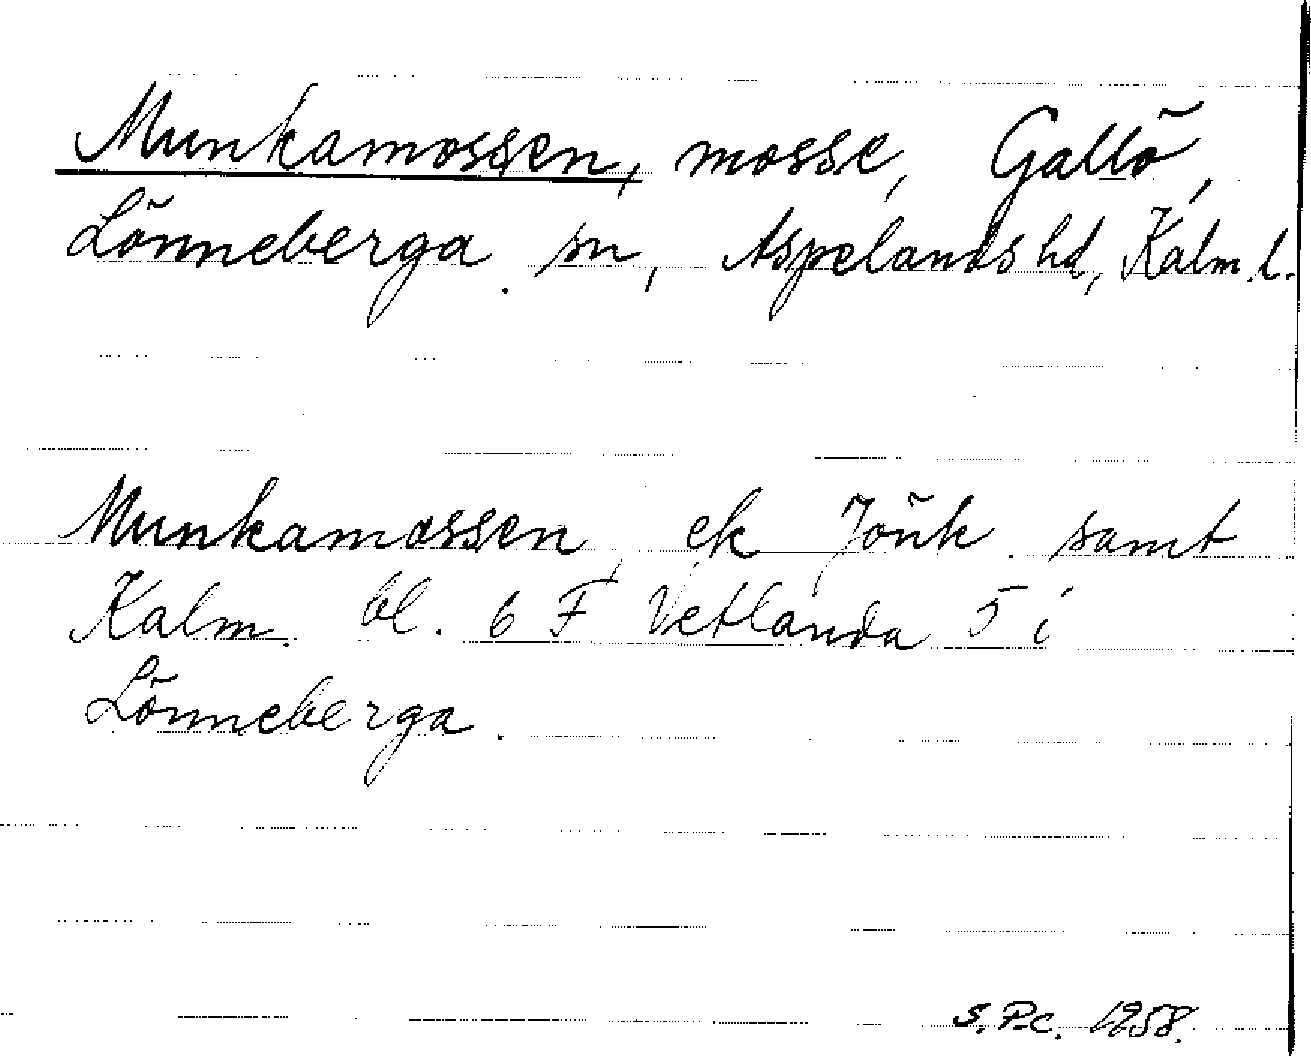 Munkamossen, mosse, Gallö,
Lönneberga sn, Aspelands hd, Kalm. l.
Munkamossen, ek Jönk. samt
Kalm. bl. 6 F Vetlanda 5 i
Lönneberga.
S. P-c. 1958.